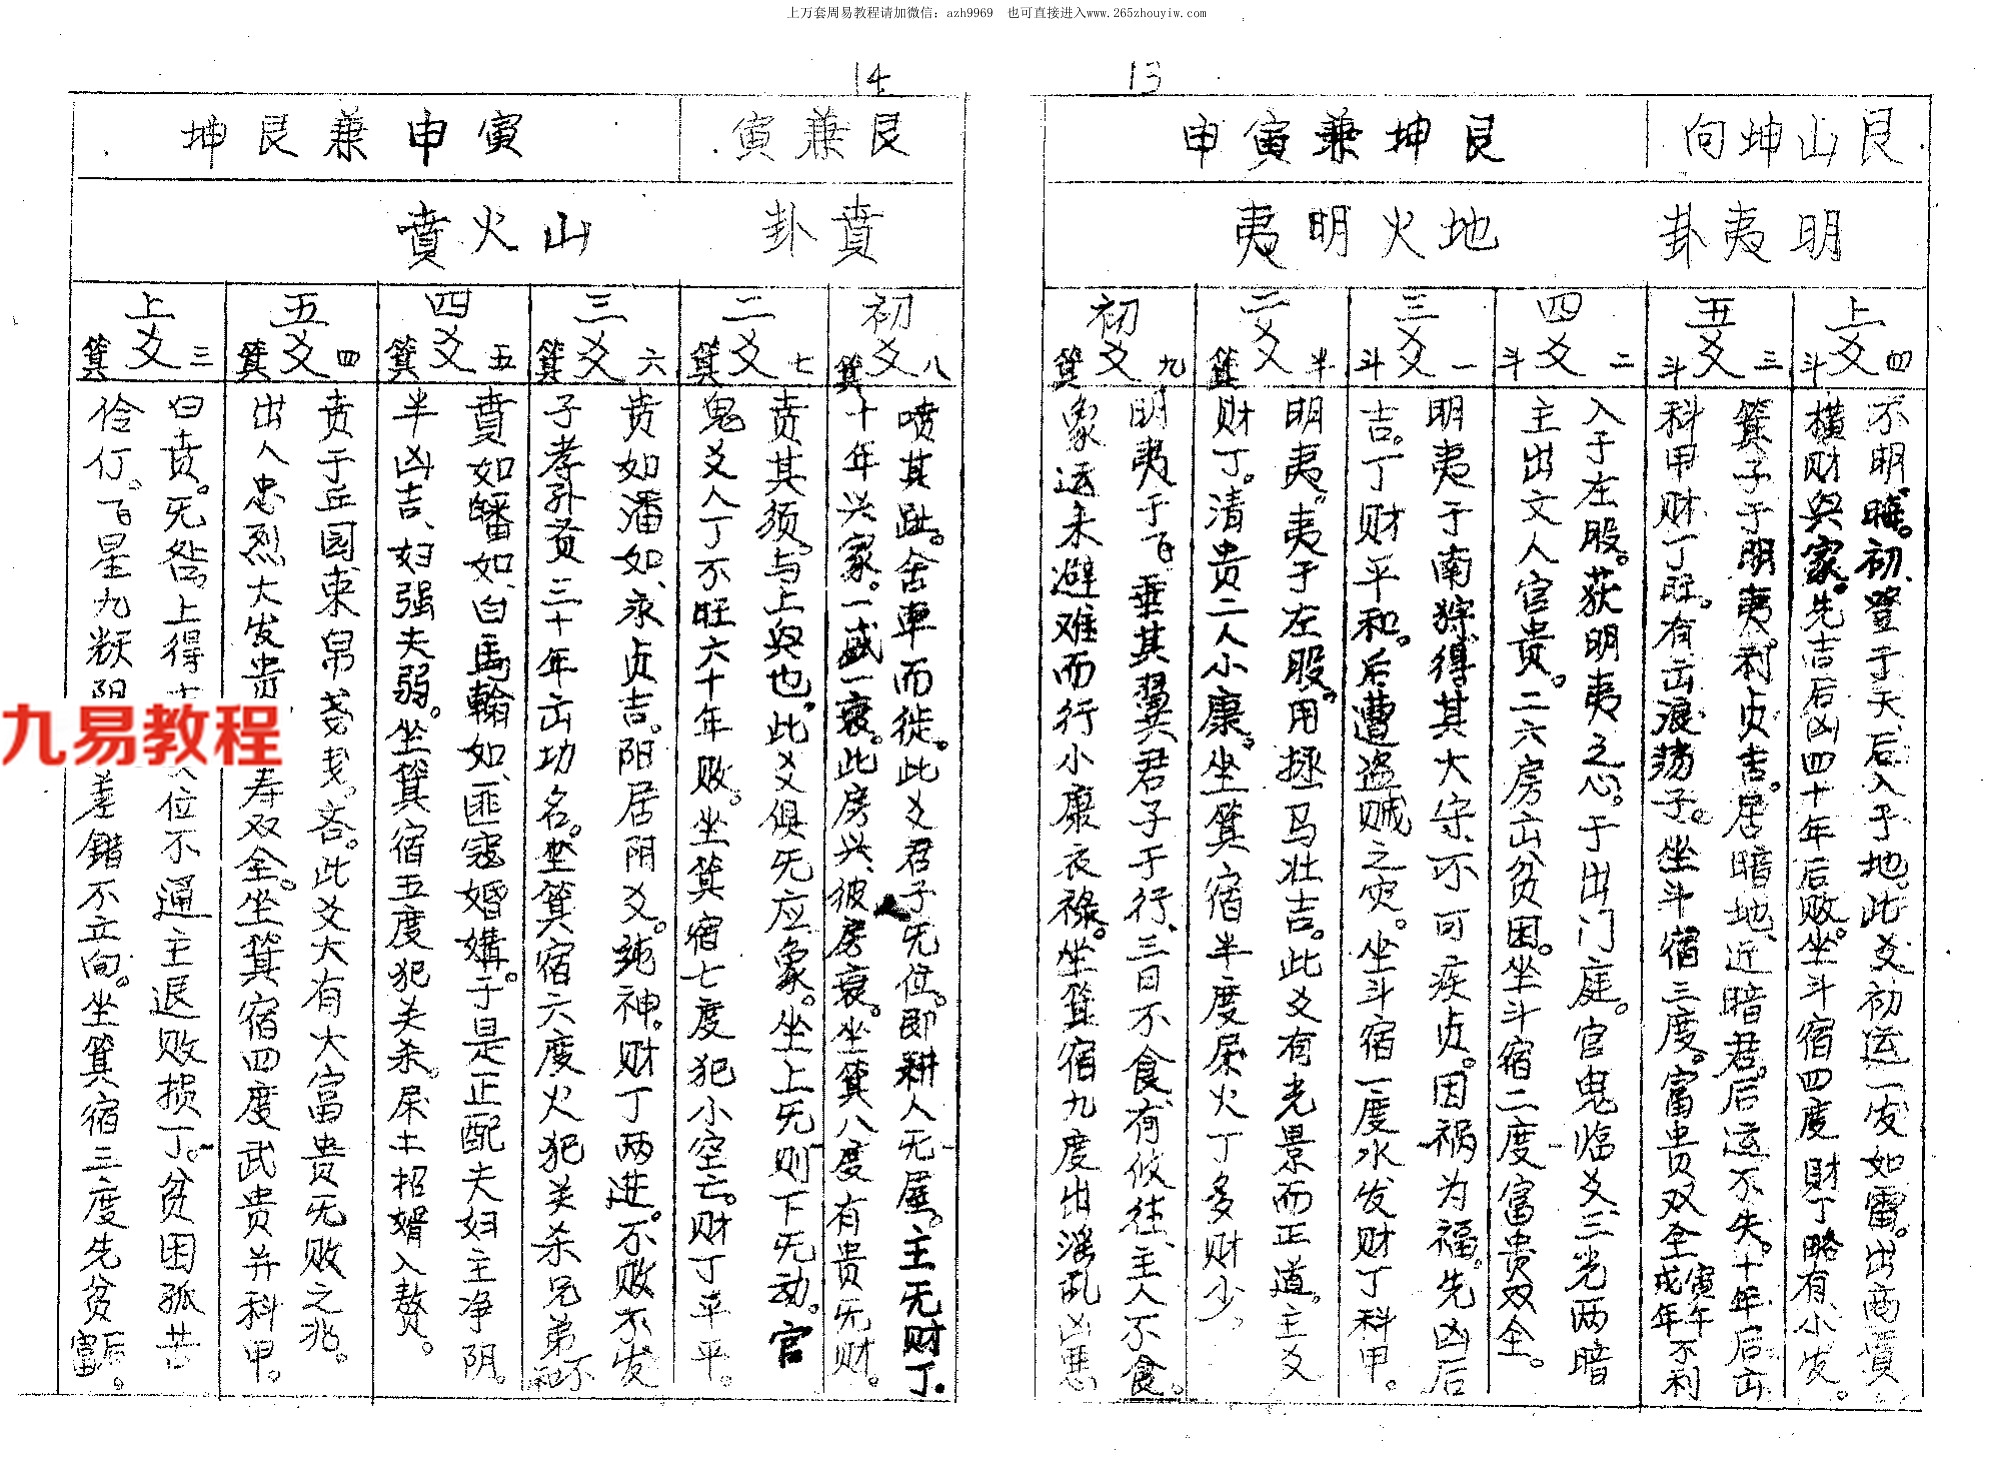 上万套周易教程请加微信: azh9969 也可直接进入www.265zhouyiw.com
13
艮山坤向
艮坤兼寅申
明夷卦
地火明夷
上爻
斗四
不明晦。初登于天、后入于地。此爻初运一发如雷。出商贾
横财興家。先吉后凶四十年后败。坐斗宿四度財丁略有小发。
五爻
斗三
箕子于明夷。利贞吉。居暗地、近暗君。后运不失。十年后出
科甲财丁旺。有出浪荡子。坐斗宿三度。富贵双全寅午戌年不利
四爻
斗二
入于左股。获明夷之心。于出门庭。官鬼临爻、三光两暗
主出文人官贵。二六房出贫困。坐斗宿二度富贵双全。
三爻
斗一
明夷于南狩、得其大守、不可疾贞。因祸为福。先凶后
吉。丁财平和。后遭盗贼之灾。坐斗宿一度水发财丁科甲。
二爻
箕半
明夷。夷于左股。用拯马壮吉。此爻有光景而正道。主爻
财丁。清贵二人小康。坐箕宿半度尿火丁多财少。
初爻
箕九
明夷于飞、垂其翼君子于行、三日不食有攸往、主人不食。
象运未避难而行小康衣禄。坐箕宿九度出淫乱凶恶
14
艮兼寅
寅申兼艮坤
賁卦
山火賁
初爻
箕八
喷其趾。舍車而徙。此爻君子无位。即耕人无屋。主无财丁.
十年兴家。一盛一衰。此房兴、彼房衰。坐箕八度有贵无财。
二爻
箕七
贲其须。与上興也。此爻俱无应象。坐上无则下无动。官
鬼爻人丁不旺六十年败。坐箕宿七度犯小空亡。财丁平平。
三爻
箕六
贲如潘如、永贞吉。阳居阴爻。純神。财丁两进。不败不发
子孝孙贤三十年出功名。坐箕宿六度火犯关杀兄弟不和
四爻
箕五
賁如皤如、白馬翰如、匪寇婚媾。于是正配夫妇主净阴。
半凶吉、妇强夫弱。坐箕宿五度犯关杀。尿土招婿入赘。
五爻
箕四
贲于丘园、束帛戔戋。吝。此爻大有大富贵无败之兆。
出人忠烈大发贵 寿双全。坐箕宿四度武贵并科甲。
上爻
箕三
白贲。无咎。上得 位不通主退败损丁。贫困孤苦
伶仃。飞星九粎阴 差錯不立向。坐箕宿三度先贫后富。
九易教程